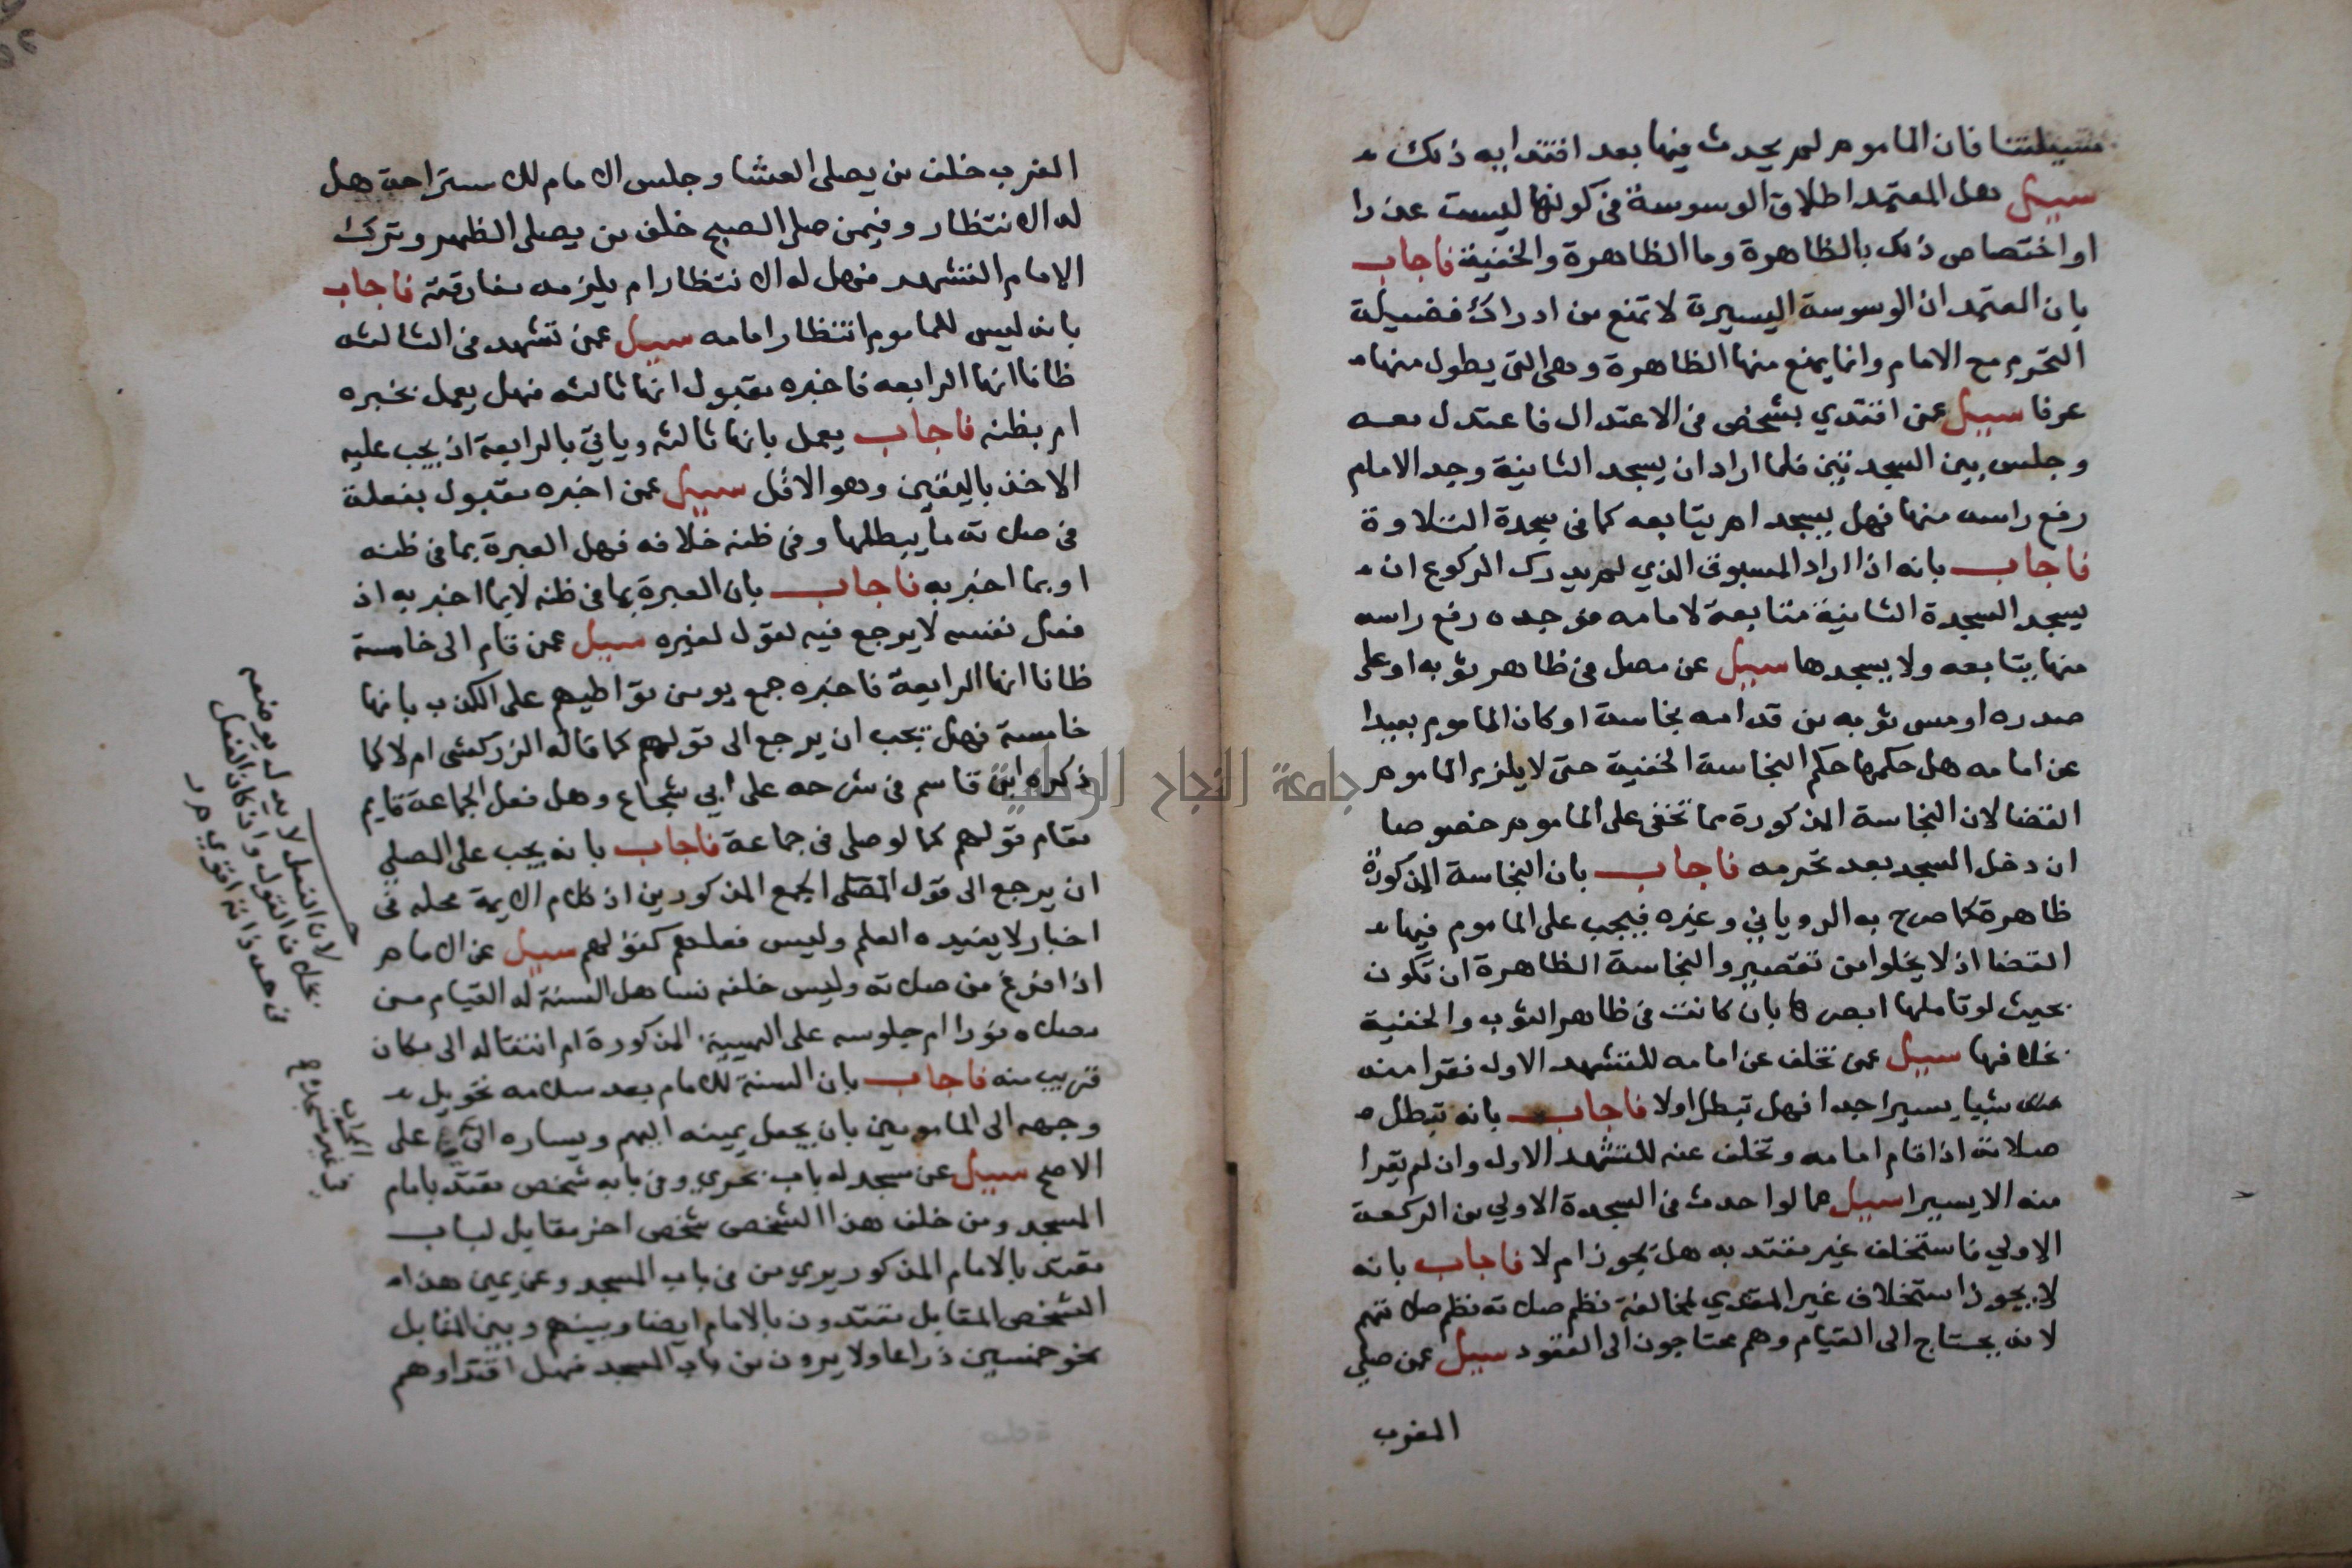 مسيلتنا فان الماموم لم يحدث فيها بعد اقتدايه ذلك
سييل هل المعتمد اطلاق الوسوسة في كونها ليست عذرا
او اختصاص ذلك بالظاهرة وما الظاهرة والخفية فاجاب
بان المعتمد ان الوسوسة اليسيرة لا تمنع من ادراك فضيلة
التحرم مع الامام وانما يمنع منها الظاهرة وهي التي يطول منها
عرفا سييل عمن اقتدي بشخص في الاعتدال فاعتدل معه
وجلس بين السجدتين فلما اراد ان يسجد الثانية وجد الامام
رفع راسه منها فهل يسجد ام يتابعه كما في سجدة التلاوة
فاجاب بانه اذا اراد المسبوق الذي لم يدرك الركوع ان
يسجد السجدة الثانية متابعة لامامه فوجده رفع راسه
منها يتابعه ولا يسجدها سييل عن مصل في ظاهر ثوبه او على
صدره او مس ثوبه من قدامه نجاسة او كان الماموم بعيدا
عن امامه هل حكمها حكم النجاسة الخفية حتى لا يلزم الماموم
القضا لان النجاسة المذكورة مما تخفى على الماموم خصوصا
ان دخل المسجد بعد تحرمه فاجاب بان النجاسة المذكورة
ظاهرة كما صرح به الروياني وغيره فيجب على الماموم فيها
القضا اذ لا يخلوا من تقصير والنجاسة الظاهرة ان تكون
بحيث لو تاملها ابصرها بان كانت في ظاهر الثوب والخفية
بخلافها سييل عمن تخلف عن امامه للتشهد الاول فقرا منه
شيا يسيرا جدا فهل تبطل اولا فاجاب بانه تبطل
صلاته اذا قام امامه وتخلف عنه للتشهد الاول وان لم يقرا
منه الا يسيرا سييل عما لو احدث في السجدة الاولي من الركعة
الاولي فاستخلف غير مقتد به هل يجوز ام لا فاجاب بانه
لا يجوز استخلاف غير المقتدي لمخالفة نظم صلاته نظم صلاتهم
لانه يحتاج الى القيام وهم محتاجون الى القعود سييل عمن صلي
المغرب
المغرب خلف من يصلي العشا وجلس الامام للاستراحة هل
له الانتظار وفيمن صلى الصبح خلف من يصلي الظهر وترك
الامام التشهد فهل له الانتظار ام يلزمه مفارقته فاجاب
بانه ليس للماموم انتظار امامه سييل عمن تشهد في الثالثه
ظانا انها الرابعه فاخبره مقبول انها ثالثه فهل يعمل بخبره
ام بظنه فاجاب يعمل بانها ثالثه وياتي بالرابعة اذ يجب عليه
الاخذ باليقين وهو الاقل سييل عمن اخبره مقبول بفعله
في صلاته ما يبطلها وفي ظنه خلافه فهل العبرة بما في ظنه
او بما اخبر به فاجاب بان العبرة بما في ظنه لا بما اخبر به اذ
فعل نفسه لا يرجع فيه لقول لغيره سييل عمن قام الى خامسة
ظانا انها الرابعة فاخبره جمع يومن تواطيهم على الكذب بانها
خامسة فهل يجب ان يرجع الى قولهم كما قاله الزركشي ام لا كما
ذكره ابن قاسم في شرحه على ابي شجاع وهل فعل الجماعة قايم
مقام قولهم كما لو صلى في جماعة فاجاب بانه يجب على المصلي
ان يرجع الى قول المصلي الجمع المذكورين اذ كلام الايمة محله في
اخبار لا يفيده العلم وليس فعلهم كقولهم سييل عن الامام
اذا فرغ من صلاته وليس خلفه نسا هل السنة له القيام من
مصلاه فورا ام جلوسه على الهيية المذكورة ام انتقاله الى مكان
قريب منه فاجاب بان السنة للامام بعد سلامه تحويل
وجهه الى المامومين بان يجعل يمينه اليهم ويساره الى على
الاصح سييل عن مسجد له باب بحري وفي بابه شخص مقتد بامام
المسجد ومن خلف هذا الشخص شخص اخر مقابل لباب
مقتد بالامام المذكور يري من في باب المسجد وعن يمين هذا
الشخص المقابل مقتدون بالامام ايضا وبينهم وبين المقابل
نحو خمسين ذراعا ولا يرون من باب المسجد فهل اقتداوهم
لان الفعل لا يدل بوضعه
بخلاف القول وان كان الفعل
من حيث ذاته اقوي م ر
المحراب
جامعة النجاح الوطنية